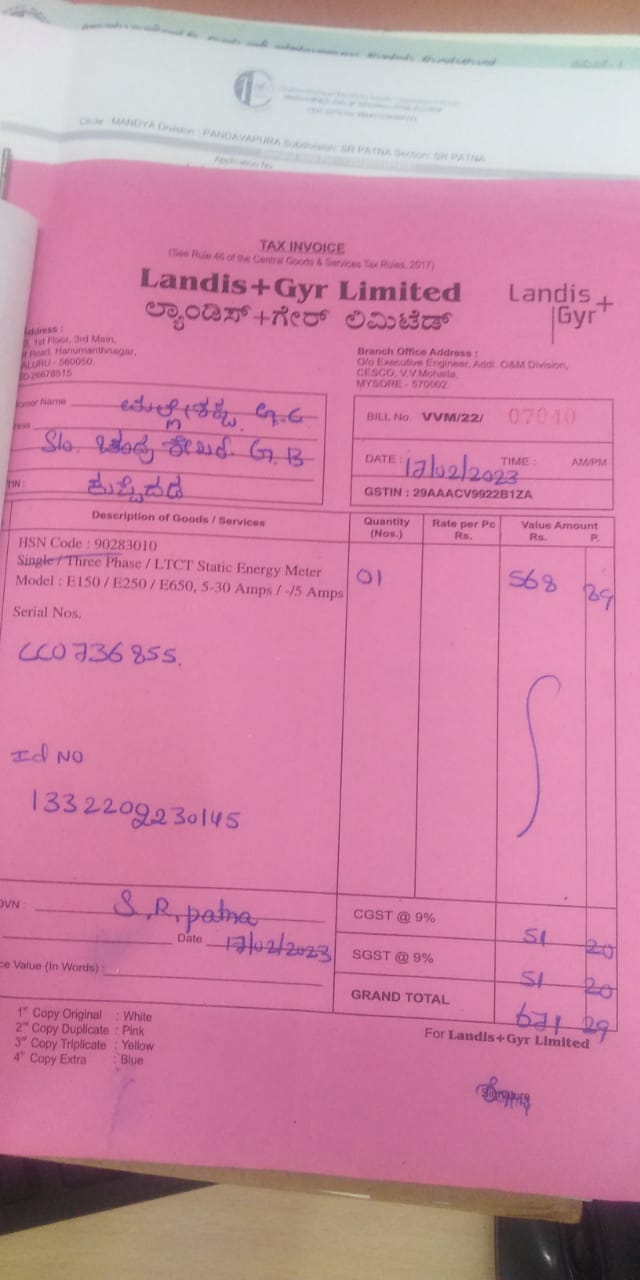 Circle : MANDYA Division : PANDAVAPURA Subdivision: SR PATNA Section: SR PATNA
Application No
TAX INVOICE
(See Rule 46 of the Central Goods & Services Tax Rules, 2017)
Landis+Gyr Limited
ಲ್ಯಾಂಡಿಸ್+ಗೇರ್ ಲಿಮಿಟೆಡ್
Landis+
Gyr
Address :
1st Floor, 3rd Main,
Road, Hanumanthnagar,
ALURU - 560050.
26678515
Branch Office Address :
O/o Executive Engineer, Addl. O&M Division,
CESCO, V.V.Mohalla,
MYSORE - 570002
omer Name
G.C
ress
S/o. G.B
TIN :
BILL No. VVM/22/ 07040
DATE : 17/02/2023 TIME : AM/PM
GSTIN : 29AAACV9922B1ZA
Description of Goods / Services Quantity (Nos.) Rate per Pc Rs. Value Amount Rs. P.
HSN Code : 90283010
Single / Three Phase / LTCT Static Energy Meter
Model : E150 / E250 / E650, 5-30 Amps / -/5 Amps 01 568 89
Serial Nos.
CC0736855.
Id NO
1332209230145
OVN : S.R. patna
Date 17/02/2023
ce Value (In Words) :
CGST @ 9% 51 20
SGST @ 9% 51 20
GRAND TOTAL 671 29
1st Copy Original : White
2nd Copy Duplicate : Pink
3rd Copy Triplicate : Yellow
4th Copy Extra : Blue
For Landis+Gyr Limited